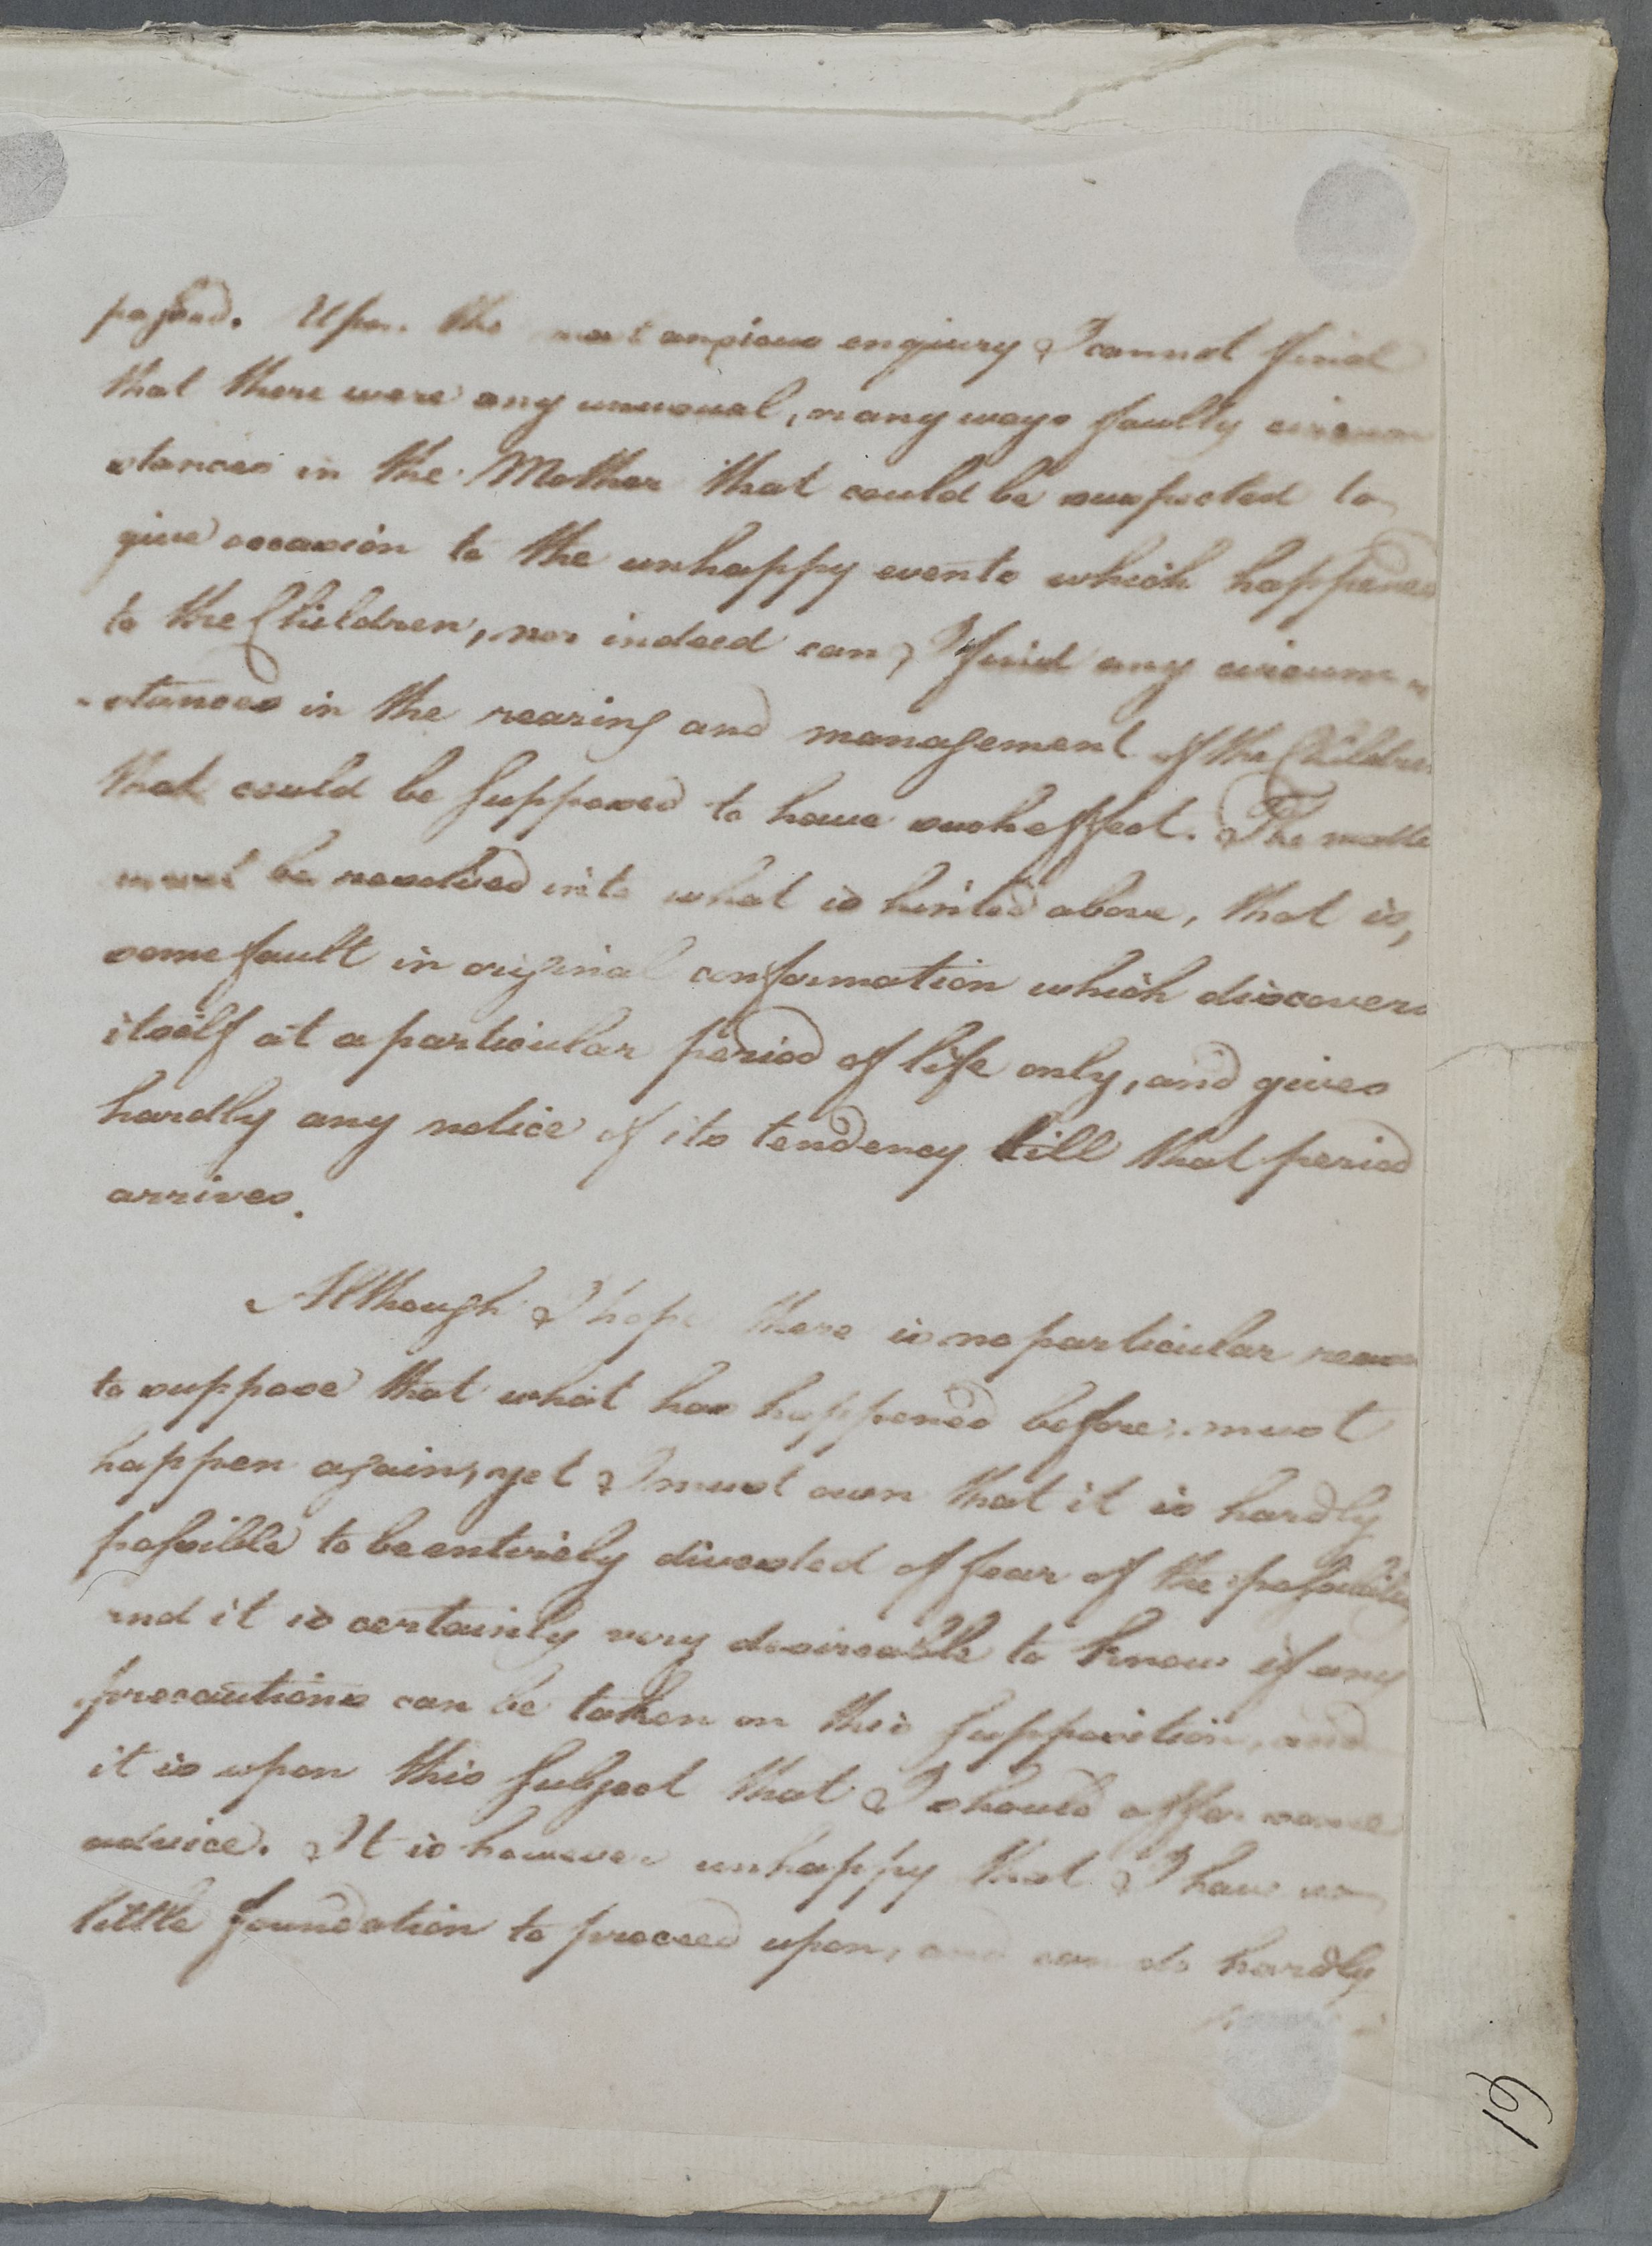 passed. Upon the most anxious enquiry I cannot find
that there were any unusual, or any ways faulty circum
stances in the Mother that could be suspected to
give occasion to the unhappy events which happened
to the Children, nor indeed can I find any circum
-stances in the rearing and management of the Children
that could be supposed to have such effect. The matter
must be resolved into what is hinted above, that is,
some fault in original conformation which discovers
itself at a particular period of life only, and gives
hardly any notice of its tendency till that period
arrives.
Although I hope there is no particular reason
to suppose that what has happened before must
happen again, yet I must own that it is hardly
possible to be entirely divested of fear of the possibility
and it is certainly very desireable to know if any
precautions can be taken on this supposition, and
it is upon this subject that I should offer some
advice. It is however unhappy that I have so
little foundation to proceed upon, and can do hardly
19